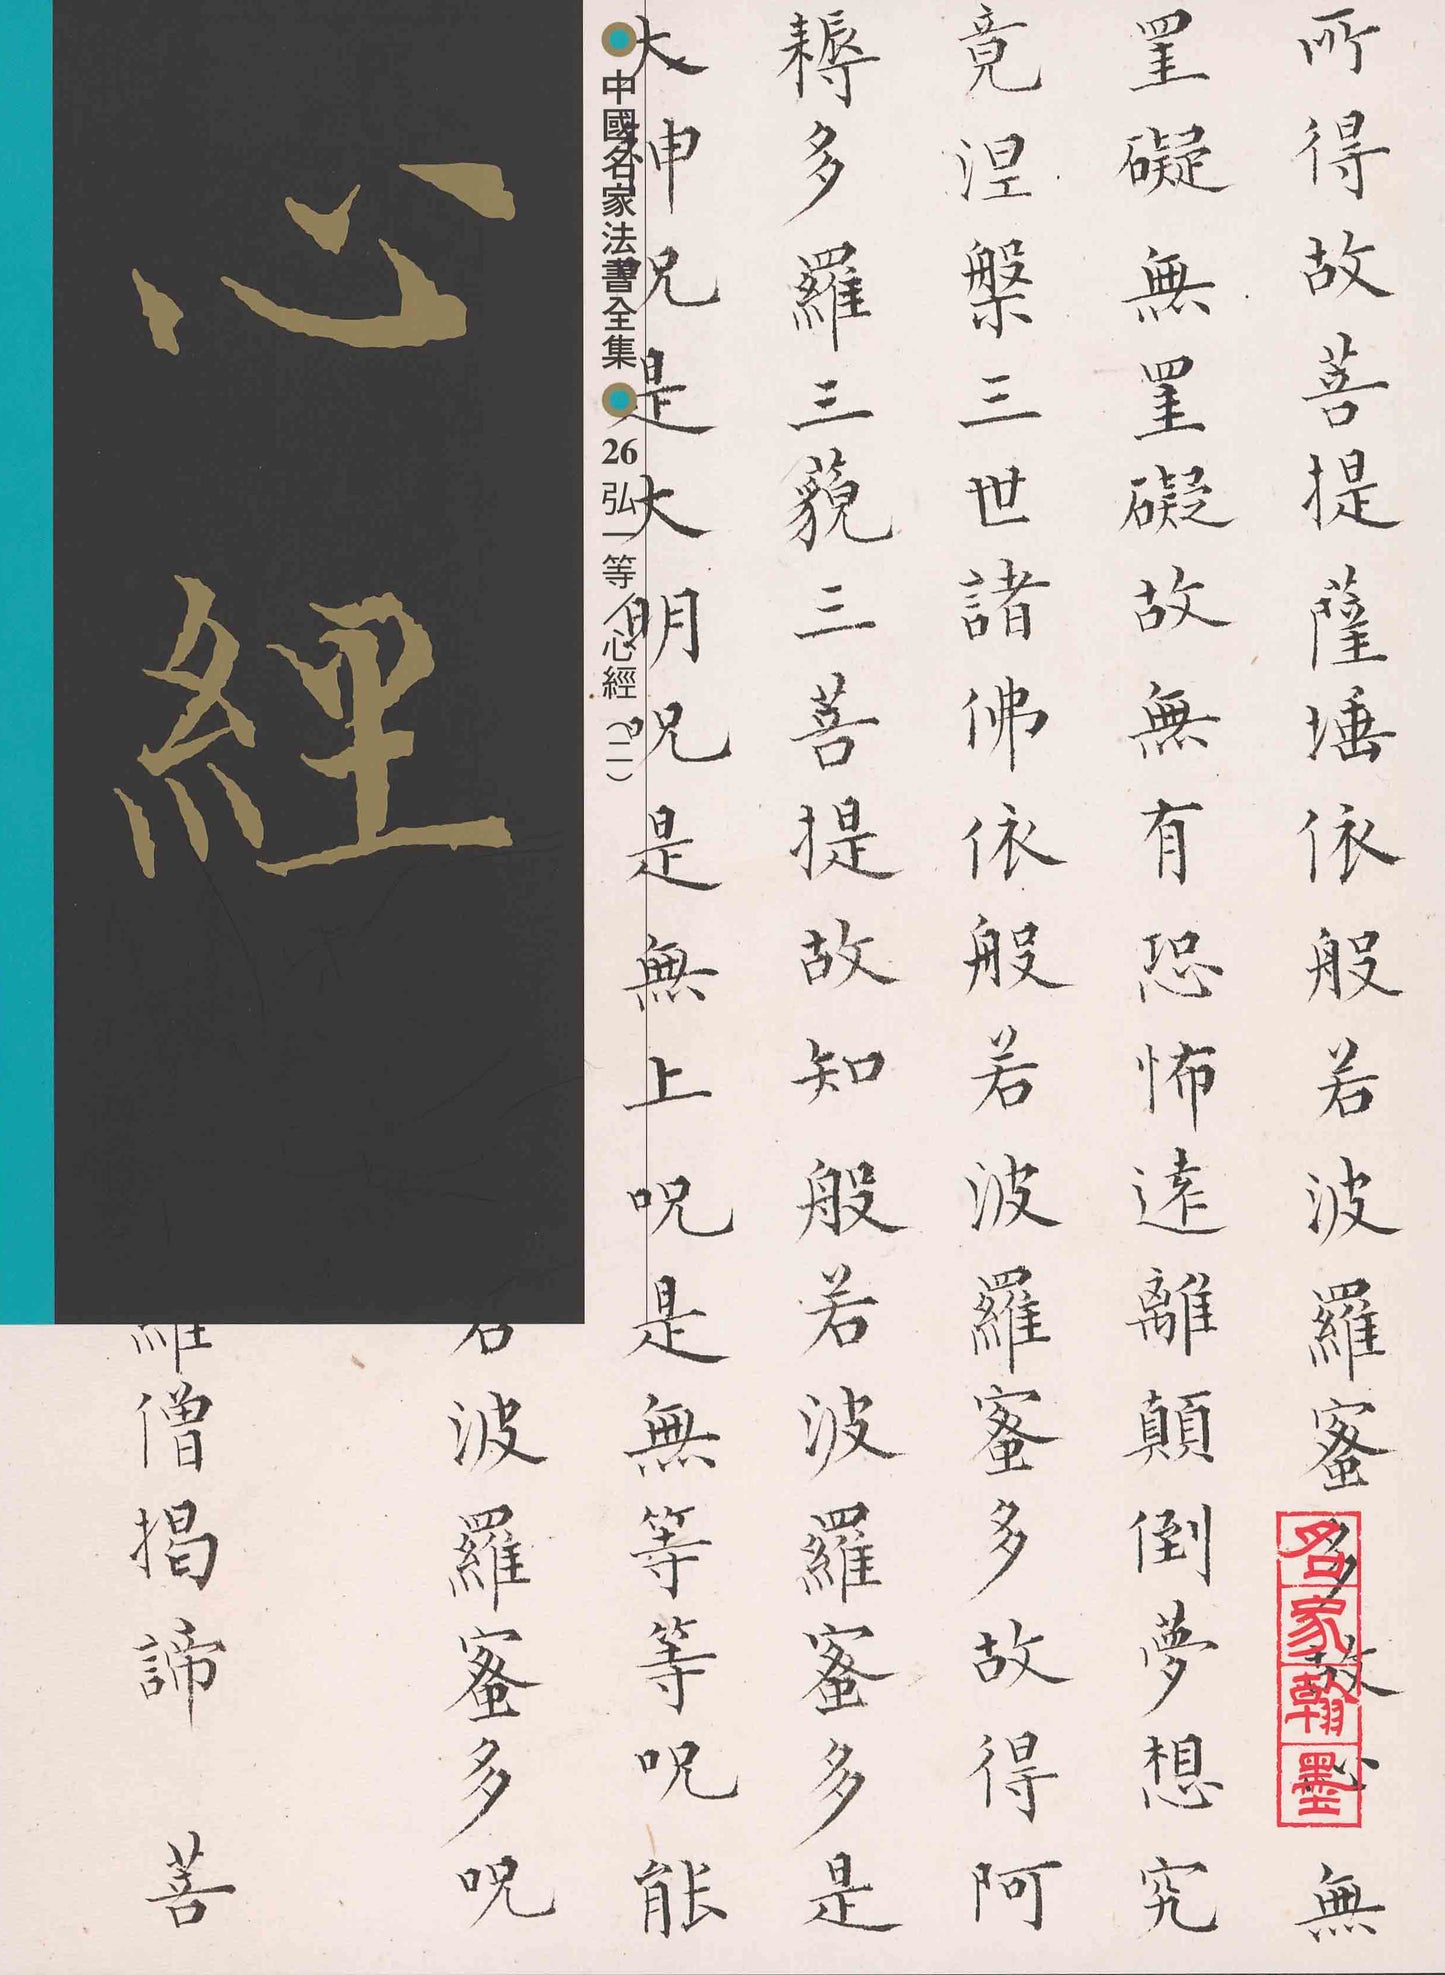 所得故菩提薩埵依般若波羅蜜多故心無
罣礙無罣礙故無有恐怖遠離顛倒夢想究
竟涅槃三世諸佛依般若波羅蜜多故得阿
耨多羅三藐三菩提故知般若波羅蜜多是
大神呪是大明呪是無上呪是無等等呪能
若波羅蜜多呪
羅僧揭諦 菩
名家翰墨
中國名家法書全集 26 弘一等／心經（二）
心經